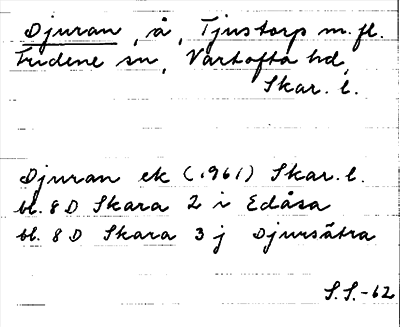 Djuran, å, Tjustorp m.fl.
Fridene sn, Vartofta hd,
Skar. l.
Djuran ek (1961) Skar. l.
bl. 8 D Skara 2 i Edåsa
bl. 8 D Skara 3 j Djursätra
S.S.-62